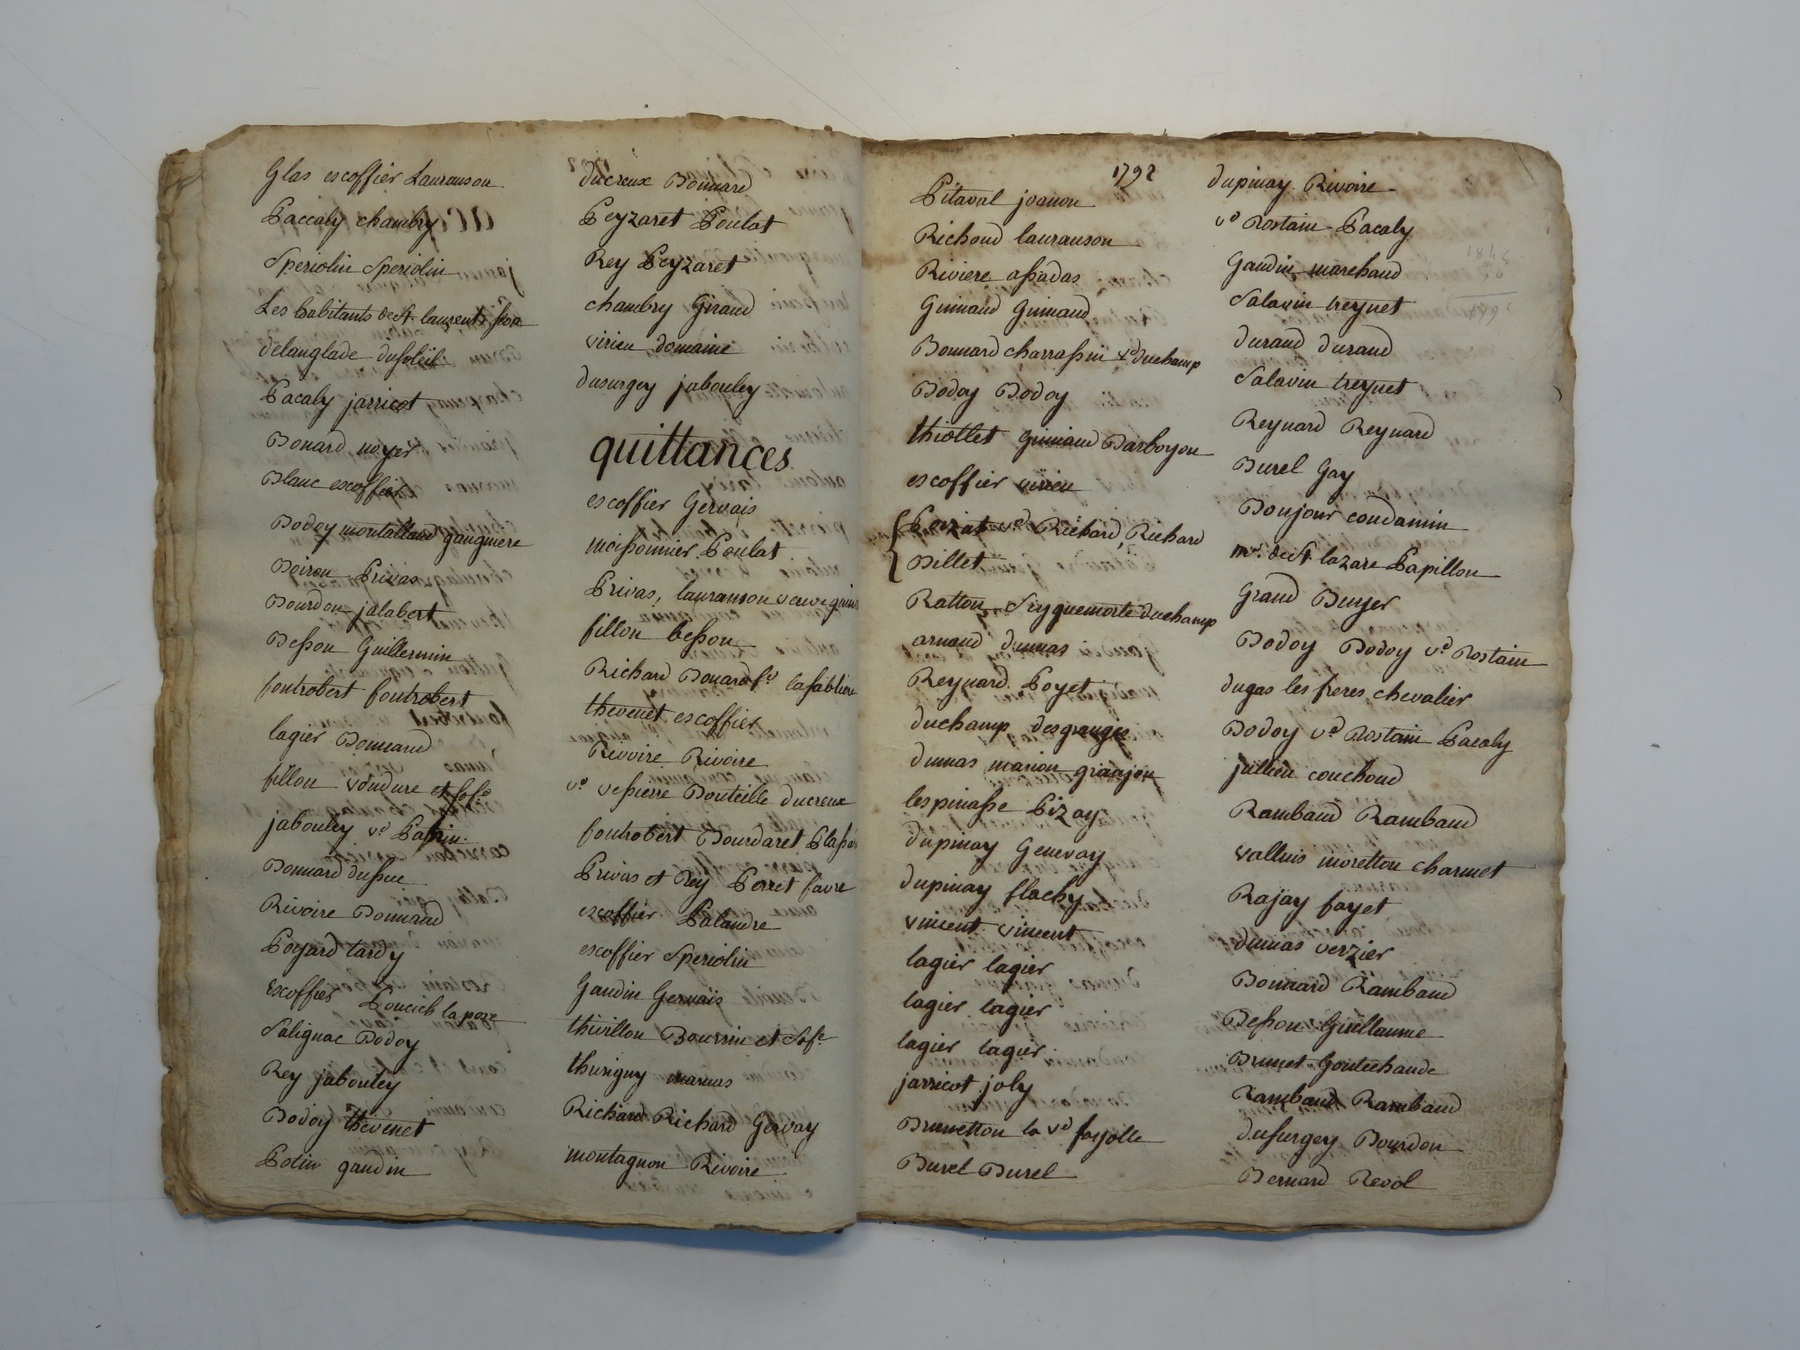 Glas escoffier Lauranson
Paccaly chambry
Speriolin Speriolin
Les habitants de St laurent
delanglade dusoleil
Pacaly jarricot
Bonard noyer
Blanc escoffier
Bodoy montalland gauguiere
Boiron Privas
Bourdon jalabert
Besson Guillermin
fontrobert fontrobert
lagier Bonnand
fillon Vondure et
jabouley ve Patrin
Bonnard
Rivoire Bonnand
Poyard tardy
Escoffier
Salignac Bodoy
Rey jabouley
Bodoy thevenet
Potin gaudin
ducreux Bonnard
Peyzaret Poulat
Rey Peyzaret
chambry Giraud
virieu domaine
dusurgey jabouley
quittances
escoffier Gervais
moissonnier Poulat
Privas, lauranson veuve
fillon besson
Richard Bonard
thevenet escoffier
Rivoire Rivoire
ve vessiere Bouteille ducreux
fontrobert Bourdaret
Privas et Rey Perret favre
escoffier Palandre
escoffier Speriolin
Gaudin Gervais
thivillon Bourrin et
thurigny marnas
Richard Richard Gervay
montagnon Rivoire
1792
Pitaval joanon
Richoud lauranson
Riviere assadas
Guinand Guinand
Bonnard charrassin ve duchamp
Bodoy Bodoy
thiollet guinand Barboyon
escoffier virieu
Peyzat ve Richard, Richard
Billet
Ratton duchamp
arnaud dumas
Reynard Poyet
duchamp desgranges
dumas marion granjon
lespinasse Pizay
dupinay Genevay
dupinay flachy
vincent vincent
lagier lagier
lagier lagier
lagier lagier
jarricot joly
Brunetton la ve fayolle
Burel Burel
dupinay Rivoire
ve Rostain Pacaly
Gaudin marchand
Salavin treynet
durand durand
Salavin treynet
Reynard Reynard
Burel Gay
Bonjour condamin
mr de St lazare Papillon
Grand Buyer
Bodoy Bodoy ve Rostain
dugas les freres, chevalier
Bodoy ve Rostain Pacaly
jullien couchoud
Rambaud Rambaud
Valluis moretton charmet
Rajay fayet
dumas verzier
Bonnard Rambaud
Besson Guillaume
Brunet Goutechaude
Rambaud Rambaud
dusurgey Bourdon
Bernard Revol